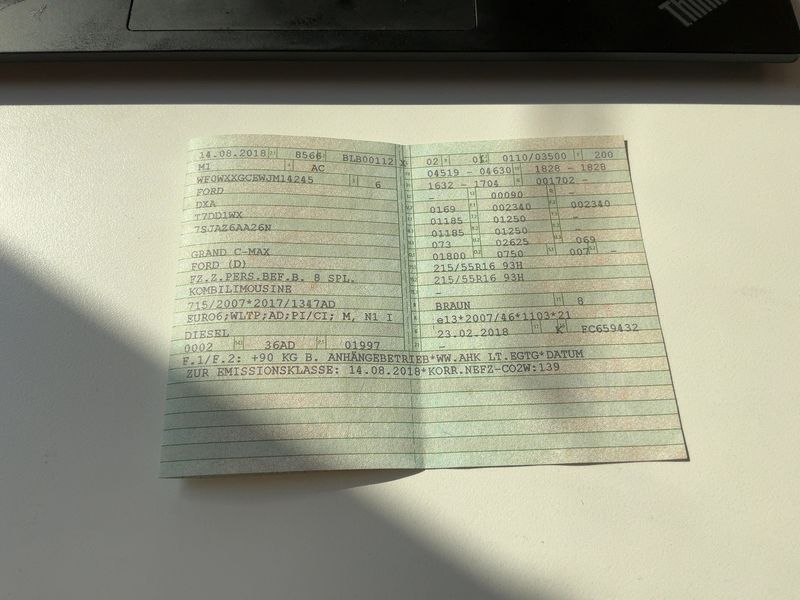 Think
14.08.2018 8566 BLB00112 X
M1 AC
WF0WXXGCEWJM14245 6
FORD
DXA
T7DD1WX
7SJAZ6AA26N
GRAND C-MAX
FORD (D)
FZ.Z.PERS.BEF.B. 8 SPL.
KOMBILIMOUSINE
715/2007*2017/1347AD
EURO6;WLTP;AD;PI/CI; M, N1 I
DIESEL
0002 36AD 01997
02 0110/03500 200
04519 - 04630 1828 - 1828
1632 - 1704 001702 -
- 00090 -
0169 002340 002340
01185 01250 -
01185 01250 -
073 02625 069
01800 0750 007 -
215/55R16 93H
215/55R16 93H
-
BRAUN 8
e13*2007/46*1103*21
23.02.2018 K FC659432
-
F.1/F.2: +90 KG B. ANHÄNGEBETRIEB*WW.AHK LT.EGTG*DATUM
ZUR EMISSIONSKLASSE: 14.08.2018*KORR.NEFZ-CO2W:139